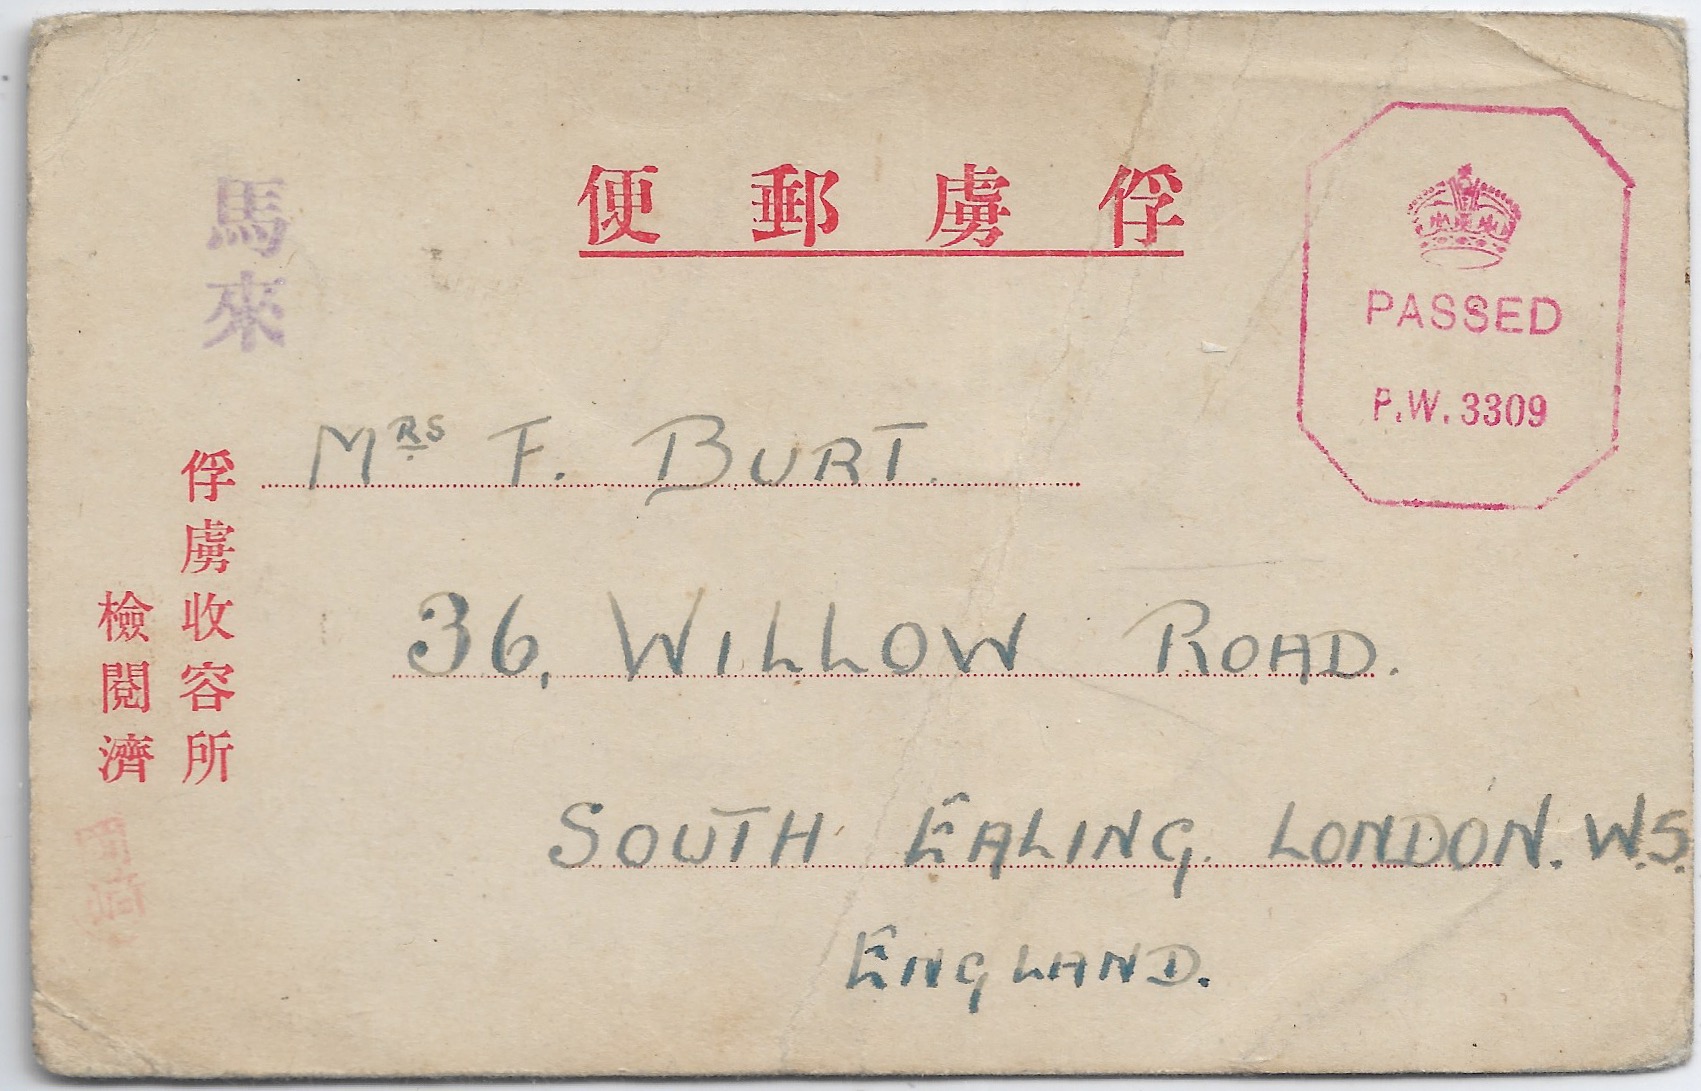 俘虜郵便
PASSED
P.W. 3309
馬來
俘虜收容所
檢閱濟
MRS F. BURT.
36, WILLOW ROAD.
SOUTH EALING. LONDON. W.5.
ENGLAND.